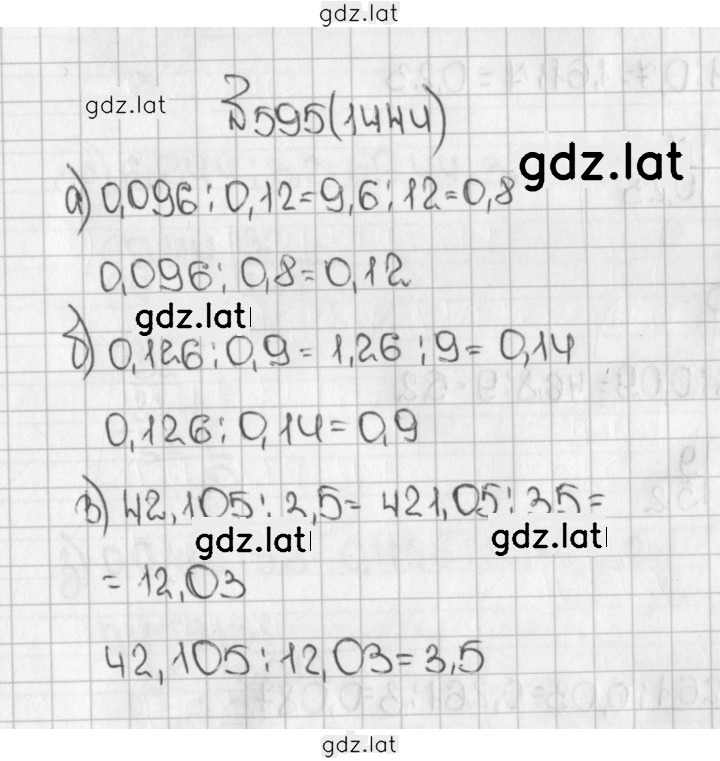 gdz.lat
gdz.lat
№595(1444)
gdz.lat
а) 0,096 : 0,12 = 9,6 : 12 = 0,8
0,096 : 0,8 = 0,12
gdz.lat
б) 0,126 : 0,9 = 1,26 : 9 = 0,14
0,126 : 0,14 = 0,9
в) 42,105 : 2,5 = 421,05 : 35 =
gdz.lat gdz.lat
= 12,03
42,105 : 12,03 = 3,5
gdz.lat